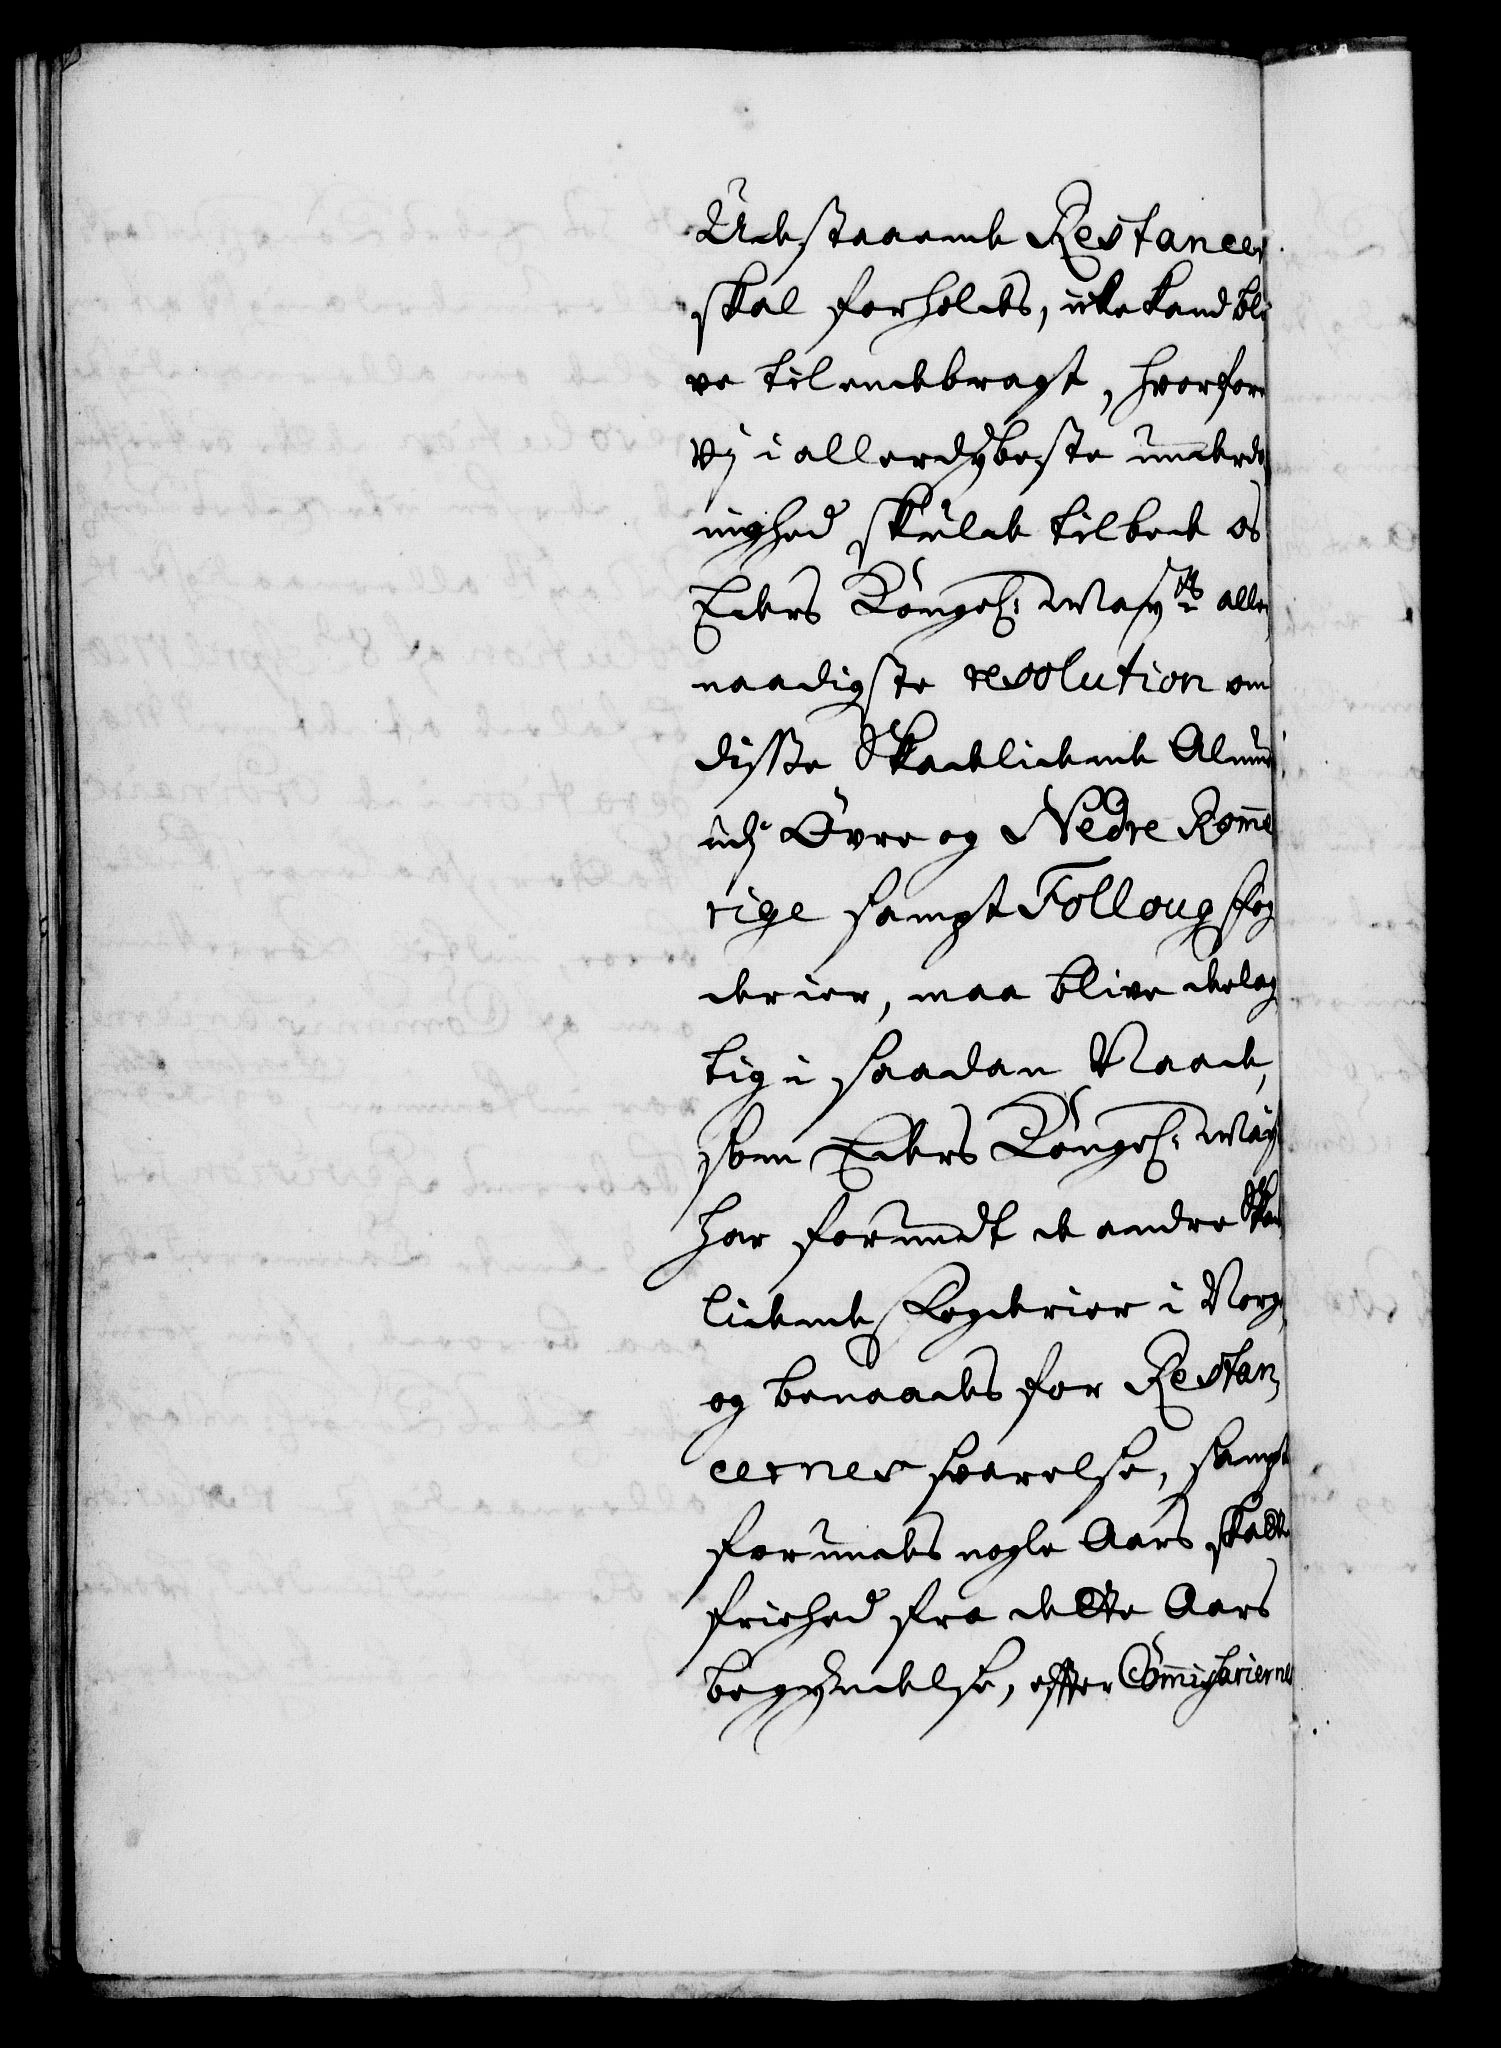 Udestaaende Restancer
skal forholdes, icke kand bli
ve tilendebragt, hvorfore
vj i allerdybeste underda
nighed skulde tilbede os
Eders Kongel: May.ts aller
naadigste resolution om
disse Skadelidende Almue
udj Øvre og Nedre Rome
rige sampt Folloug fog
derier, maa blive delag
tig i saadan Naade,
som Eders Kongel: May
har forundt de andre Skade
lidende Fogderier i Norge,
og benaades for Restan,
cernes svarelse, sampt
forundes nogle Aars skatte
friehed fra dette Aars
begyndelse, effter Commissariernes